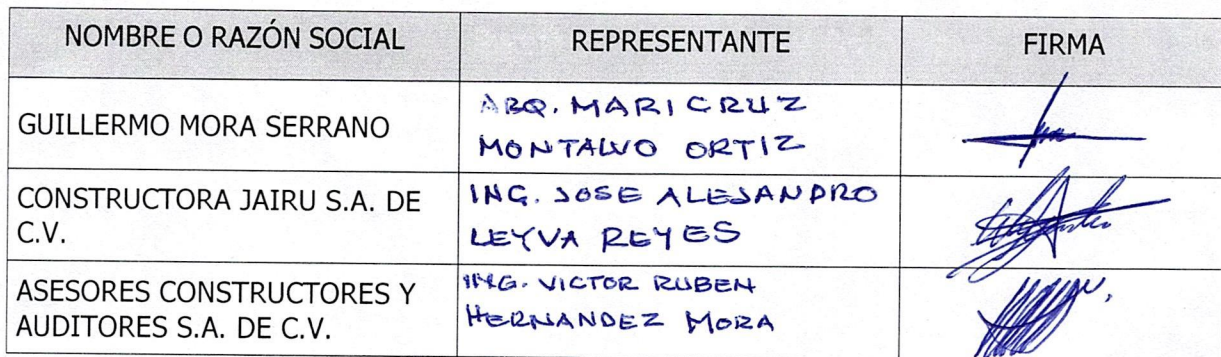 NOMBRE O RAZÓN SOCIAL REPRESENTANTE FIRMA
GUILLERMO MORA SERRANO
ARQ. MARICRUZ
MONTALVO ORTIZ
CONSTRUCTORA JAIRU S.A. DE
C.V.
ING. JOSE ALEJANDRO
LEYVA REYES
ASESORES CONSTRUCTORES Y
AUDITORES S.A. DE C.V.
ING. VICTOR RUBEN
HERNANDEZ MORA